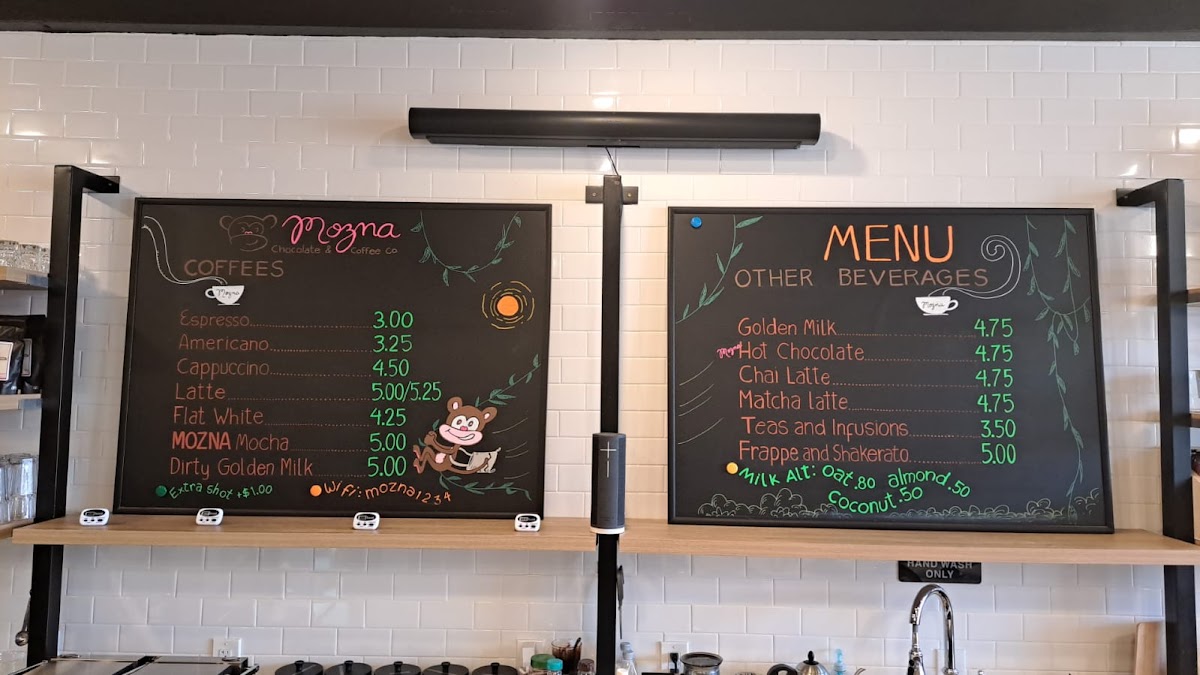 Mozna
Chocolate & Coffee Co
COFFEES
Mozna
Espresso 3.00
Americano 3.25
Cappuccino 4.50
Latte 5.00/5.25
Flat White 4.25
MOZNA Mocha 5.00
Dirty Golden Milk 5.00
Extra shot +$1.00
Wifi: mozna1234
MENU
OTHER BEVERAGES
Mozna
Golden Milk 4.75
Mozna Hot Chocolate 4.75
Chai Latte 4.75
Matcha latte 4.75
Teas and Infusions 3.50
Frappe and Shakerato 5.00
Milk Alt: oat .80 almond .50
coconut .50
HAND WASH
ONLY